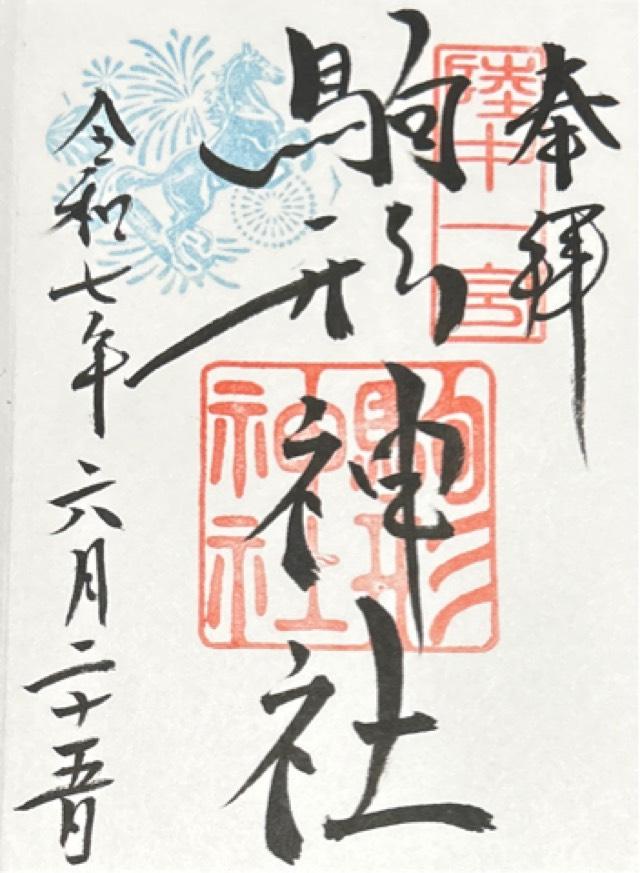 奉拝
陸中一宮
駒形神社
駒形神社
令和七年六月二十五日